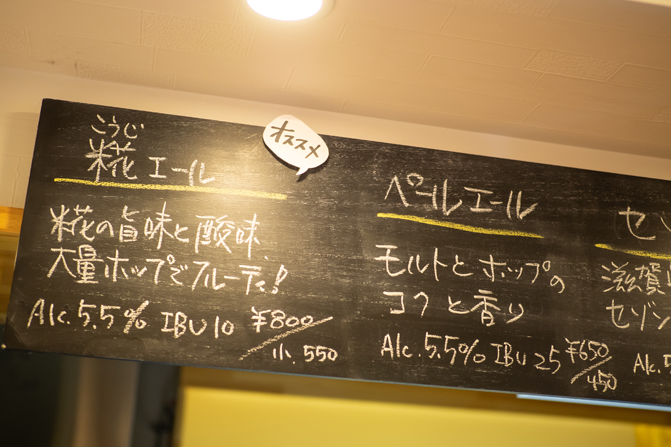 こうじ
糀エール
オススメ
糀の旨味と酸味、
大量ホップでフルーティ!
Alc.5.5% IBU 10 ¥800
小. 550
ペールエール
モルトとホップの
コクと香り
Alc.5.5% IBU 25 ¥650
450
セゾ
滋賀
セゾン
Alc.5